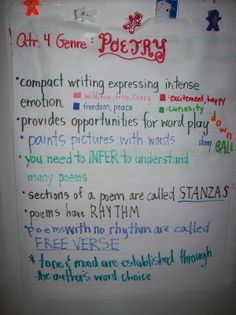 Qtr. 4 Genre: POETRY
• compact writing expressing intense
emotion
wild, fun, free, crazy
excitement, happy
freedom, peace
curiosity
• provides opportunities for word play
down
• paints pictures with words
BALL
• you need to INFER to understand
many poems
• sections of a poem are called STANZAS
• poems have RHYTHM
• poems with no rhythm are called
FREE VERSE
* tone & mood are established through
the author's word choice